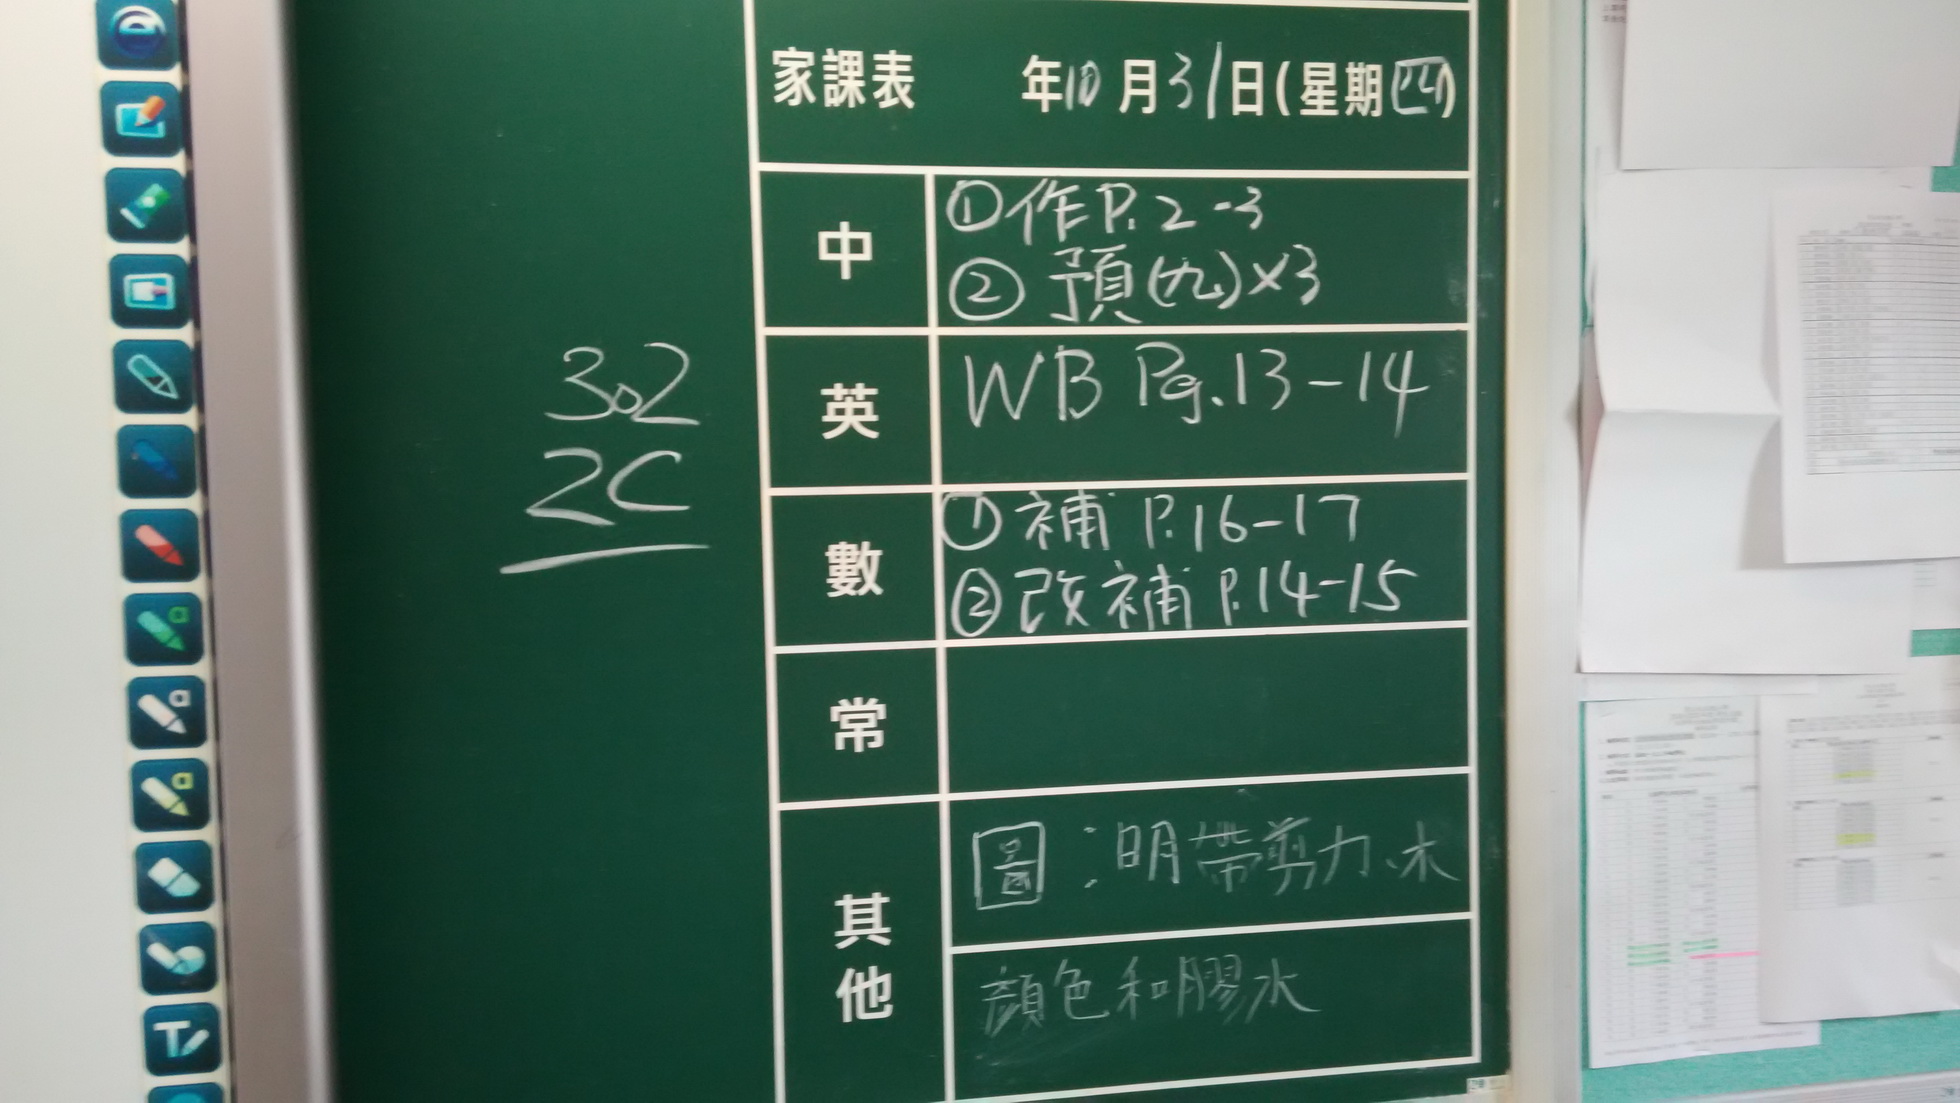 家課表 年10月31日(星期四)
中
①作P.2-3
②預(九)×3
302
2C
英
WB Pg.13-14
數
①補 P.16-17
②改補 P.14-15
常
其他
圖：明帶剪刀、木
顏色和膠水